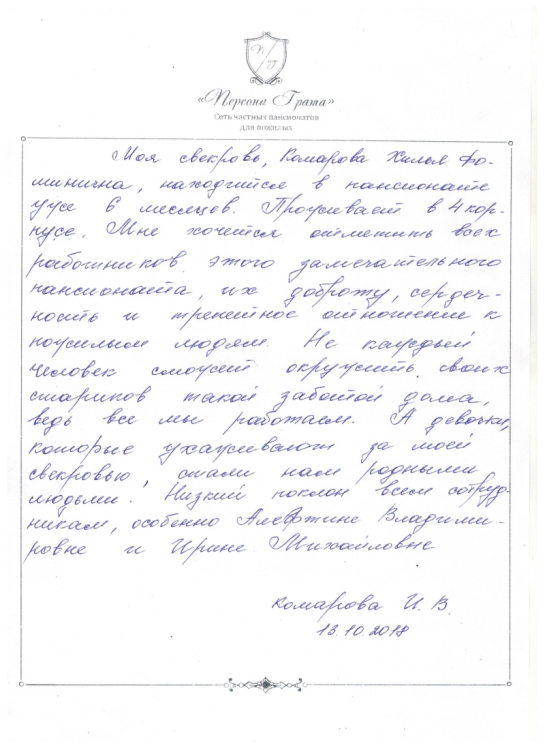 П Г
«Персона Грата»
Сеть частных пансионатов
для пожилых
Моя свекровь, Комарова Хилья Фо-
минична, находится в пансионате
уже 6 месяцев. Проживает в 4 кор-
пусе. Мне хочется отметить всех
работников этого замечательного
пансионата, их доброту, сердеч-
ность и трепетное отношение к
пожилым людям. Не каждый
человек сможет окружить своих
стариков такой заботой дома,
ведь все мы работаем. А девочки,
которые ухаживают за моей
свекровью, стали нам родными
людьми. Низкий поклон всем сотруд-
никам, особенно Алефтине Владими-
ровне и Ирине Михайловне
Комарова И. В.
13.10.2018